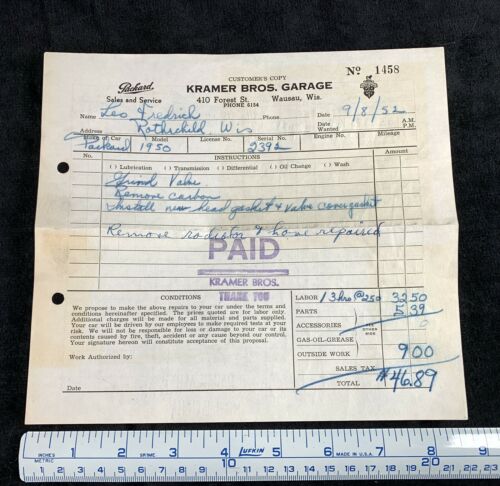 CUSTOMER'S COPY
Nº 1458
Packard
KRAMER BROS. GARAGE
Sales and Service
410 Forest St. Wausau, Wis.
PHONE 6154
Name Leo Fredrich Phone Date 9/8/52 A.M.
Address Rothschild Wis Date Wanted P.M.
Make of Car Model License No. Serial No. Engine No. Mileage
Packard 1950 2392
No. INSTRUCTIONS Amount
( ) Lubrication ( ) Transmission ( ) Differential ( ) Oil Change ( ) Wash
Grind Valve
Remove carbon
Install new head gasket & valve cover gasket
Remove radiator & have repaired
PAID
KRAMER BROS.
THANK YOU
CONDITIONS
We propose to make the above repairs to your car under the terms and
conditions hereinafter specified. The prices quoted are for labor only.
Additional charges will be made for all material and parts supplied.
Your car will be driven by our employees to make required tests at your
risk. We will not be responsible for loss or damage to your car or its
contents caused by fire, theft, accident or any cause beyond our control.
Your signature hereon will constitute acceptance of this proposal.
Work Authorized by:
Date
LABOR 13 hrs @ 250 3250
PARTS 5.39
ACCESSORIES OTHER SIDE
GAS-OIL-GREASE
OUTSIDE WORK 900
SALES TAX
TOTAL #46.89
INCHES 1 2 3 4 5 6 7 8 9
METRIC 10 20
LUFKIN
MADE IN U.S.A.